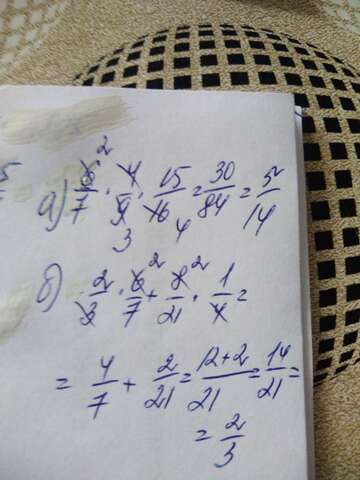 5
а) 6/7 2 · 4/9 3 · 15/16 4 = 30/84 = 5/14
б) 2/3 · 6/7 2 + 8/21 2 · 1/4 =
= 4/7 + 2/21 = 12+2/21 = 14/21 =
= 2/3